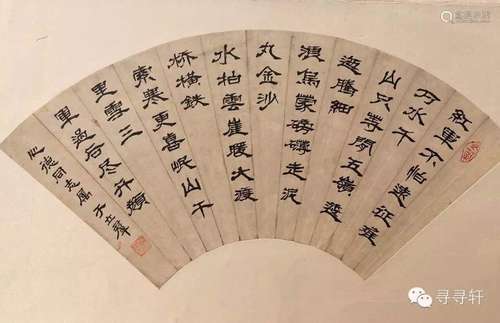 紅軍不怕遠征難
万水千
山只等閒五嶺逶
迤騰細
浪烏蒙磅礴走泥
丸金沙
水拍雲崖暖大渡
桥橫鐵
索寒更喜岷山千
里雪三
軍過后尽开顏
德同志属 于立群
寻寻轩